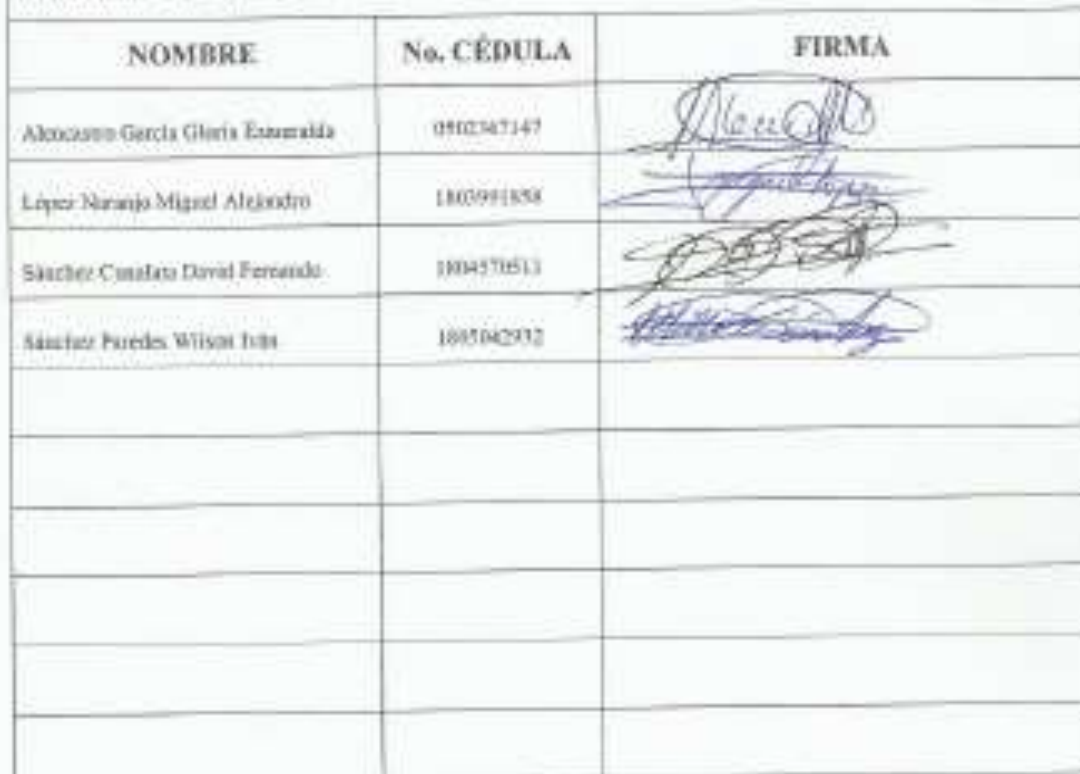 NOMBRE No. CÉDULA FIRMA
García Gloria Esmeralda 0502367147
López Naranjo Miguel Alejandro 1803991858
Sánchez David Fernando 1804570511
Sánchez Paredes Wilson Iván 1805042932